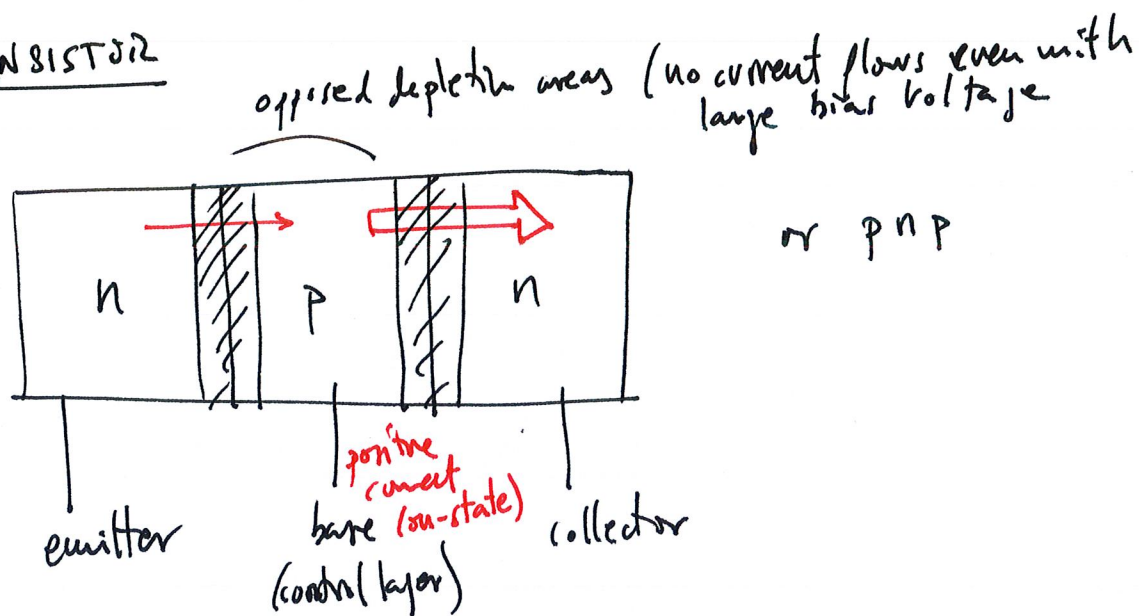 NSISTOR
opposed depletion areas (no current flows even with
large bias voltage
or pnp
n
p
n
positive
current
(on-state)
emitter
base
collector
(control layer)